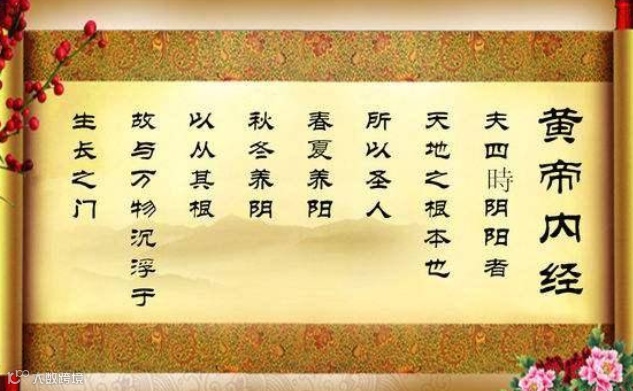 黄帝内经
夫四時阴阳者
天地之根本也
所以圣人
春夏养阳
秋冬养阴
以从其根
故与万物沉浮于
生长之门
大数跨境